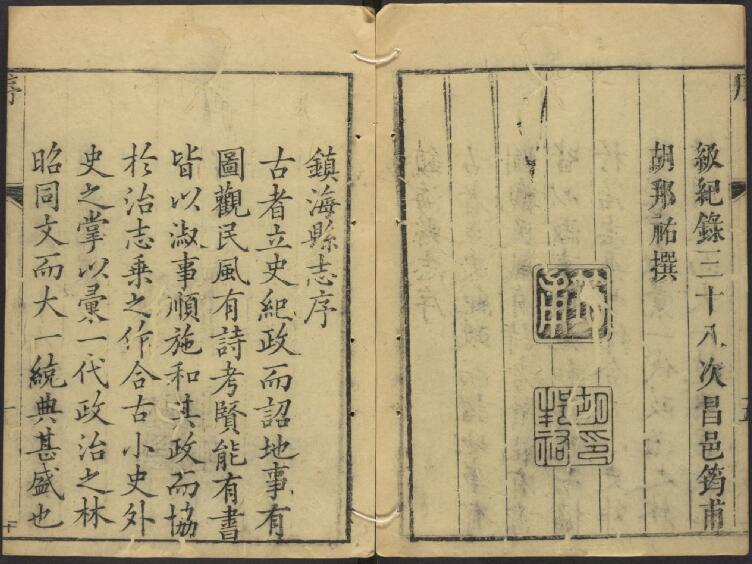 級紀錄三十八次昌邑筠甫
胡邦祐撰
鎮海縣志序
古者立史紀政而詔地事有
圖觀民風有詩考賢能有書
皆以淑事順施和其政而協
於治志乘之作合古小史外
史之掌以彙一代政治之林
昭同文而大一統典甚盛也
序
一